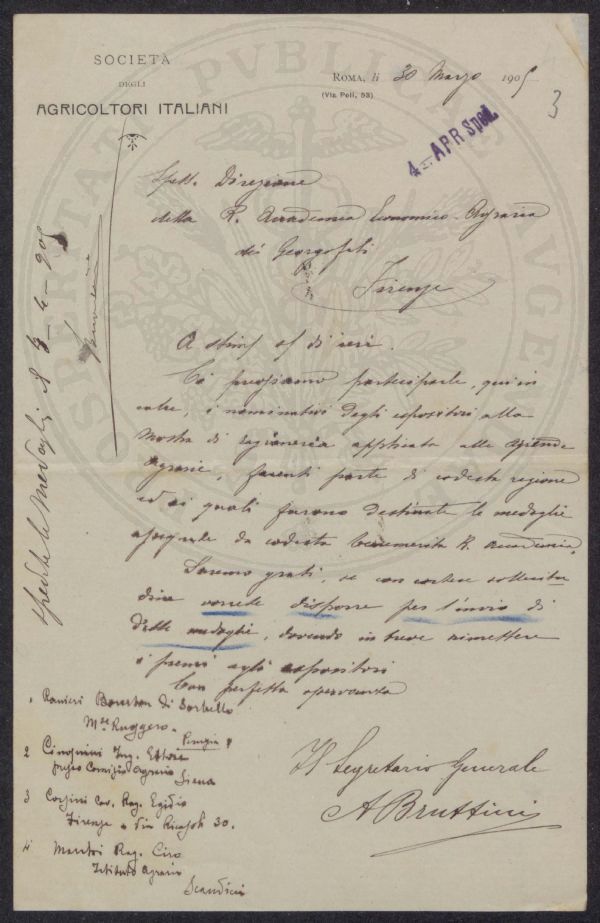 SOCIETÀ
DEGLI
AGRICOLTORI ITALIANI
ROMA, li 30 Marzo 1905
(Via Poli, 53)
3
4 - APR Sped.
Spett. Direzione
della R. Accademia Economico-Agraria
dei Georgofili
Firenze
A stimª of di ieri.
Ci pregiamo partecipare, qui in
calce, i nominativi degli espositori alla
Mostra di ragioneria applicata alle aziende
Agrarie, facenti parte di codesta regione
ed ai quali furono destinate le medaglie
assegnate da codesta benemerita R. Accademia.
Saremo grati, se con cortese sollecitu
dine vorrete disporre per l'invio di
dette medaglie, dovendo in breve rimettere
i premi agli espositori
Con perfetta osservanza
Il Segretario Generale
A Bruttini
1 Ranieri Bourbon di Sorbello
Mse Ruggero -
Perugia
2 Cinquini Ing. Ettore
presso Comizio Agrario
Siena
3 Corsini Cav. Rag. Egidio
Firenze - Via Ricasoli 30.
4 Rag. Ciro
Istituto Agrario
Scandicci
Spedite le Medaglie il 4-905
PVBLICAE